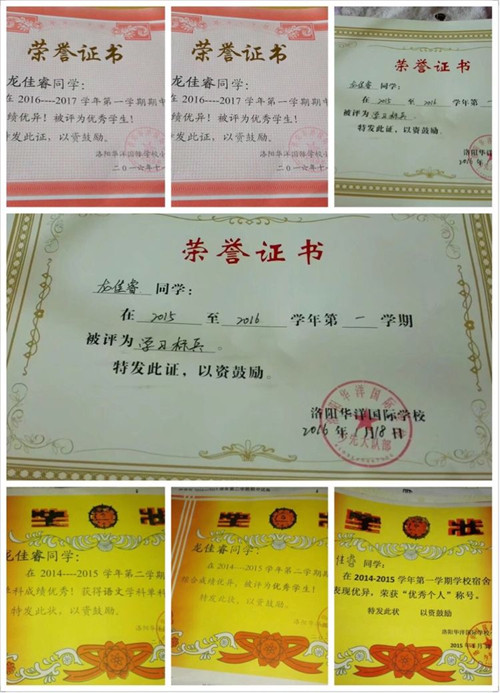 荣誉证书
龙佳睿同学：
在 2016----2017 学年第一学期期中
绩优异！被评为优秀学生！
发此证，以资鼓励。
洛阳华洋国际学校小
二〇一六年十一
荣誉证书
龙佳睿同学：
在 2016----2017 学年第一学期期中
绩优异！被评为优秀学生！
发此证，以资鼓励。
洛阳华洋国际学校小
二〇一六年十一
荣誉证书
龙佳睿 同学：
在 2015 至 2016 学年第一
被评为 学习标兵
特发此证，以资鼓励。
洛阳华洋国
2016年
荣誉证书
龙佳睿 同学：
在 2015 至 2016 学年第 一 学期
被评为 学习标兵。
特发此证，以资鼓励。
洛阳华洋国际学校
2016 年 1 月 18 日
少先大队部
奖状
龙佳睿同学：
在 2014----2015 学年第二学
科成绩优秀！获得语文学科单科
特发此状，以资鼓励。
洛阳华洋
奖状
龙佳睿同学：
在 2014----2015 学年第二学期
综合成绩优异，被评为优秀学生！
特发此状，以资鼓励。
奖状
佳睿 同学：
在 2014-2015 学年第一学期学校宿舍
表现优异，荣获“优秀个人”称号。
特发此状 以资鼓励
洛阳华洋国际学校
2015 年